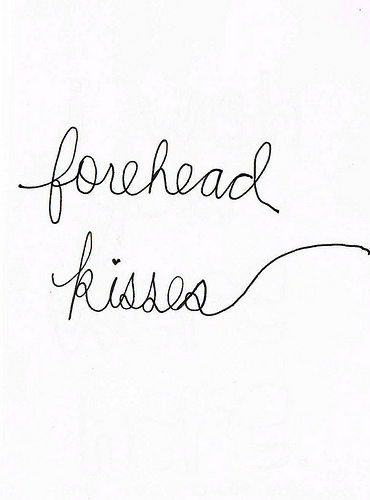 forehead
kisses